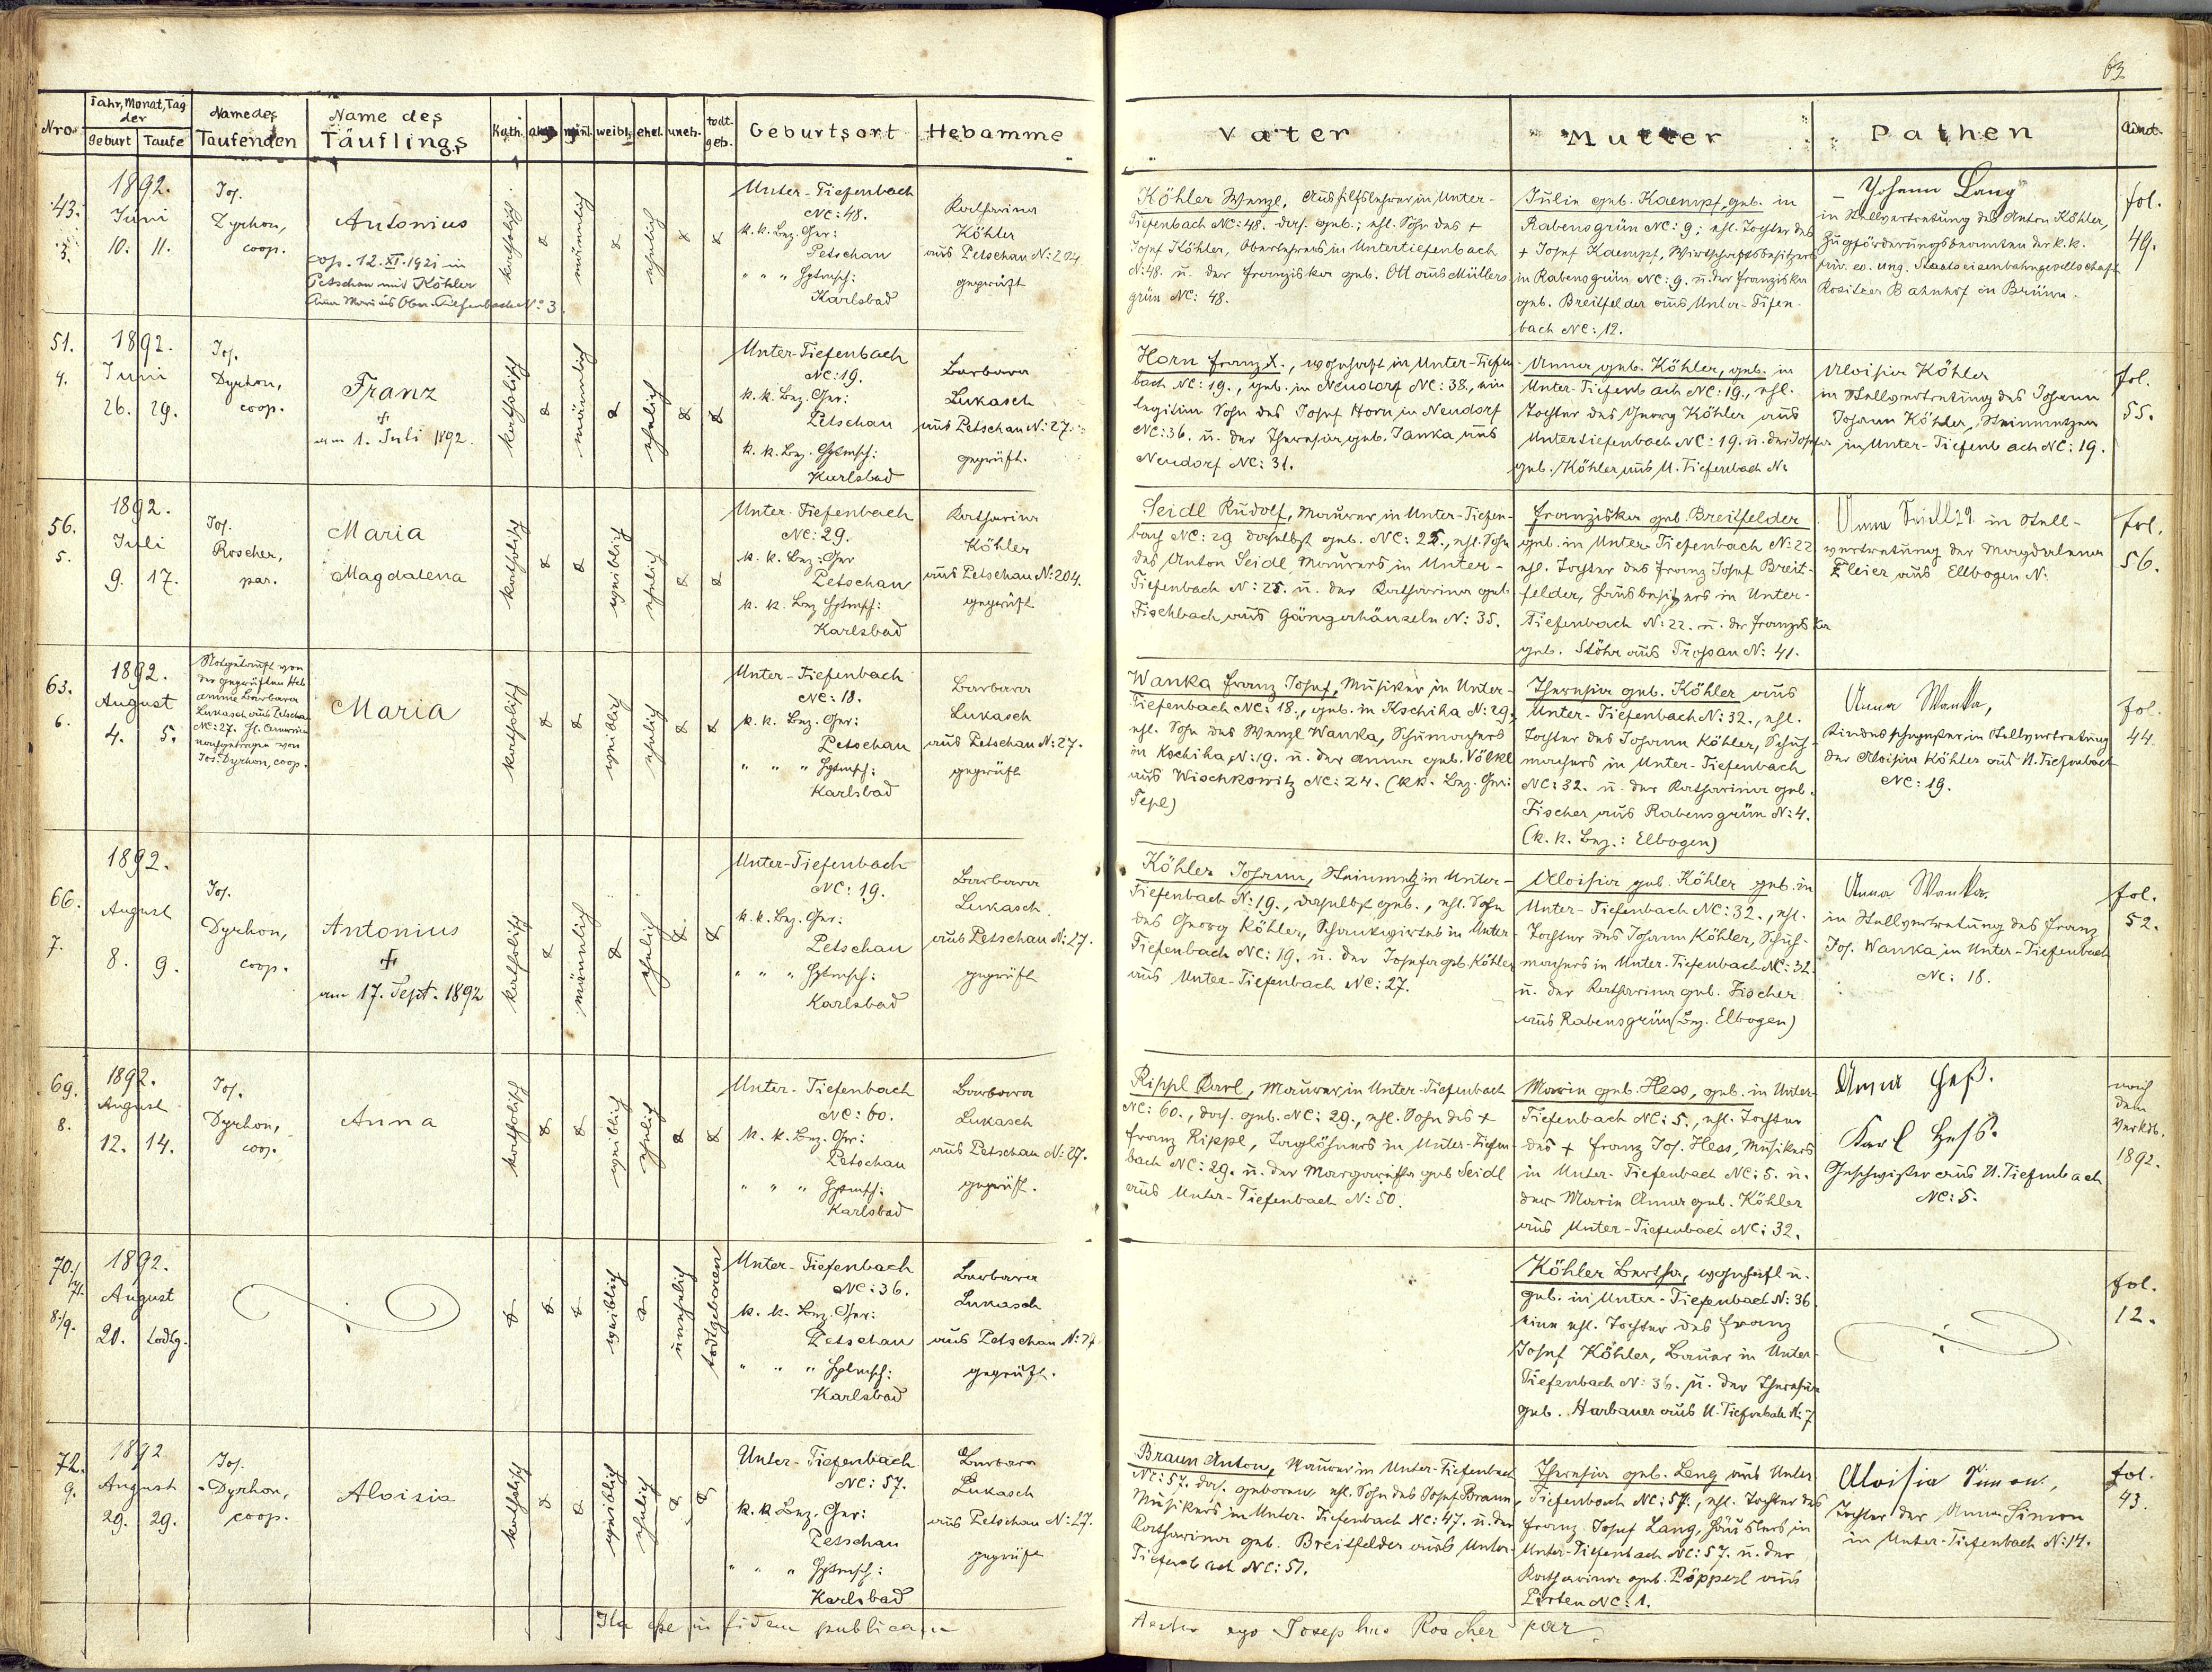 63
Nro.
Jahr, Monat, Tag
der
Geburt Taufe
Name des
Taufenden
Name des
Täuflings
Kath. männl. weibl. ehel. uneh. todt-
geb.
Geburtsort
Hebamme
Vater
Mutter
Pathen
43.
3.
1892.
Juni
10. 11.
Jos.
Dyrhon,
coop.
Antonius
cop. 12. XI. 1921 in
Petschau mit Köhler
Anna Maria aus Ober-Tiefenbach No 3.
katholisch
männlich
ehelich
Unter-Tiefenbach
NC: 48.
k. k. Bez. Ger:
Petschau
" " " Hptmsch:
Karlsbad
Katharina
Köhler
aus Petschau N: 204
geprüft
Köhler Wenzl, Aushilfslehrer in Unter-
Tiefenbach NC: 48. das. geb.; ehl. Sohn des +
Josef Köhler, Oberlehrers in Untertiefenbach
N: 48. u. der Franziska geb. Ott aus Müllers-
grün NC: 48.
Julie geb. Kaempf, geb. in
Rabensgrün NC: 9; ehl. Tochter des
+ Josef Kaempf, Wirtschaftsbesitzers
in Rabensgrün NC: 9. u. der Franziska
geb. Breitfelder aus Unter-Tiefen-
bach NC: 12.
Johann Lang
in Stellvertretung des Anton Köhler,
Zugförderungsbeamten der k. k.
priv. ö. ung. Staatseisenbahngesellschaft
Rositzer Bahnhof in Brünn.
fol.
49.
51.
4.
1892.
Juni
26. 29.
Jos.
Dyrhon,
coop.
Franz
+
am 1. Juli 1892.
katholisch
männlich
ehelich
Unter-Tiefenbach
NC: 19.
k. k. Bez. Ger:
Petschau
k. k. Bez. Hptmsch:
Karlsbad
Barbara
Lukasch
aus Petschau N: 27.
geprüft.
Horn Franz X., wohnhaft in Unter-Tiefen-
bach NC: 19., geb. in Neudorf NC: 38., ein
legitim. Sohn des Josef Horn in Neudorf
NC: 36. u. der Theresia geb. Janka aus
Neudorf NC: 31.
Anna geb. Köhler, geb. in
Unter-Tiefenbach NC: 19., ehl.
Tochter des Georg Köhler aus
Untertiefenbach NC: 19. u. der Josefa
geb. Köhler aus U. Tiefenbach Nr
Aloisia Köhler
in Stellvertretung des Johann
Johann Köhler, Steinmetzen
in Unter-Tiefenbach NC: 19.
fol.
55.
56.
5.
1892.
Juli
9. 17.
Jos.
Roscher,
par.
Maria
Magdalena
katholisch
weiblich
ehelich
Unter-Tiefenbach
NC: 29.
k. k. Bez: Ger
Petschau
k. k. Bez Hptmsch:
Karlsbad
Katharina
Köhler
aus Petschau N: 204.
geprüft
Seidl Rudolf, Maurer in Unter-Tiefen-
bach NC: 29 daselbst geb. NC: 25., ehl. Sohn
des Anton Seidl Maurers in Unter-
Tiefenbach N: 25. u. der Katharina geb.
Fischbach aus Gängerhäuseln N: 35.
Franziska geb. Breitfelder
geb. in Unter-Tiefenbach N: 22
ehl. Tochter des Franz Josef Breit-
felder, Hausbesitzers in Unter-
Tiefenbach N: 22. u. der Franziska
geb. Stöhr aus Trossau N: 41.
Anna Seidl 29. in Stell-
vertretung der Magdalena
Pleier aus Ellbogen N:
fol.
56.
63.
6.
1892.
August
4. 5.
Notgetauft von
der geprüften Heb-
amme Barbara
Lukasch aus Petschau
NC: 27.
nachgetragen von
Jos. Dyrhon, coop.
Maria
katholisch
weiblich
ehelich
Unter-Tiefenbach
NC: 18.
k. k. Bez. Ger:
Petschau
" " " Hptmsch:
Karlsbad
Barbara
Lukasch
aus Petschau N: 27.
geprüft
Wanka Franz Josef, Musiker in Unter-
Tiefenbach NC: 18., geb. in Kschiha N: 29.
ehl. Sohn des Wenzl Wanka, Schumachers
in Kschiha, N: 19. u. der Anna geb. Völkl
aus Wischkowitz NC: 24. (k.k. Bez. Ger:
Tepl)
Theresia geb. Köhler aus
Unter-Tiefenbach N: 32., ehl.
Tochter des Johann Köhler, Schuh-
machers in Unter-Tiefenbach
NC: 32. u. der Katharina geb.
Fischer aus Rabensgrün N: 4.
(k. k. Bez.: Elbogen)
Anna Wanka,
Kindesschwester in Stellvertretung
der Aloisia Köhler aus U. Tiefenbach
NC: 19.
fol.
44.
66.
7.
1892.
August
8. 9.
Jos.
Dyrhon,
coop.
Antonius
+
am 17. Sept. 1892
katholisch
männlich
ehelich
Unter-Tiefenbach
NC: 19.
k. k. Bez. Ger:
Petschau
" " " Hptmsch:
Karlsbad
Barbara
Lukasch
aus Petschau N: 27.
geprüft
Köhler Johann, Steinmetz in Unter-
Tiefenbach N: 19., daselbst geb., ehl. Sohn
des Georg Köhler, Schankwirtes in Unter-
Tiefenbach NC: 19. u. der Josefa geb. Köhler
aus Unter-Tiefenbach NC: 27.
Aloisia geb. Köhler geb. in
Unter-Tiefenbach NC: 32., ehl.
Tochter des Johann Köhler, Schuh-
machers in Unter-Tiefenbach NC: 32.
u. der Katharina geb. Fischer
aus Rabensgrün (Bez. Elbogen)
Anna Wanka.
in Stellvertretung des Franz
Jos. Wanka in Unter-Tiefenbach
NC: 18.
fol.
52.
69.
8.
1892.
August
12. 14.
Jos.
Dyrhon,
coop.
Anna
katholisch
weiblich
ehelich
Unter-Tiefenbach
NC: 60.
k. k. Bez. Ger:
Petschau
" " " Hptmsch:
Karlsbad
Barbara
Lukasch
aus Petschau N: 27.
geprüft.
Rippl Karl, Maurer, in Unter-Tiefenbach
NC: 60., das. geb. NC: 29., ehl. Sohn des +
Franz Rippl, Taglöhners in Unter-Tiefen-
bach NC: 29. u. der Margaretha geb Seidl
aus Unter-Tiefenbach N: 50.
Maria geb. Hess, geb. in Unter-
Tiefenbach NC: 5., ehl. Tochter
des + Franz Jos. Hess, Musikers
in Unter-Tiefenbach NC: 5. u.
der Maria Anna geb. Köhler
aus Unter-Tiefenbach NC: 32.
Anna Heß.
Karl Heß.
Geschwister aus U. Tiefenbach
NC: 5.
nach
dem
1892.
70./71.
8./9.
1892.
August
20. todtg.
weiblich
unehelich
todtgeboren
Unter-Tiefenbach
NC: 36.
k. k. Bez. Ger:
Petschau
" " " Hptmsch:
Karlsbad
Barbara
Lukasch
aus Petschau N: 27
geprüft.
Köhler Bertha, wohnhaft u.
geb. in Unter-Tiefenbach N: 36
eine ehl. Tochter des Franz
Josef Köhler, Bauer in Unter-
Tiefenbach N: 36. u. der Theresia
geb. Harbauer aus U. Tiefenbach N: 7
fol.
12.
72.
9.
1892
August
29. 29.
Jos.
Dyrhon,
coop.
Aloisia
katholisch
weiblich
ehelich
Unter-Tiefenbach
NC: 57.
k. k. Bez. Ger:
Petschau
" " " Hptmsch:
Karlsbad
Barbara
Lukasch
aus Petschau N: 27.
geprüft
Braun Anton, Maurer in Unter-Tiefenbach
NC: 57. das. geboren, ehl. Sohn des Josef Braun,
Musikers in Unter-Tiefenbach NC: 47. u. der
Katharina geb. Breitfelder aus Unter-
Tiefenbach NC: 51.
Theresia geb. Leng aus Unter
Tiefenbach NC: 57., ehl. Tochter des
Franz Josef Lang, Häuslers in
Unter-Tiefenbach NC: 57. u. der
Katharina geb. Pöpperl aus
Pirten NC: 1.
Aloisia Simon.,
Tochter der Anna Simon
in Unter-Tiefenbach N: 14.
fol.
43.
Ita esse in fidem publicam
testor ego Josephus Roscher par.